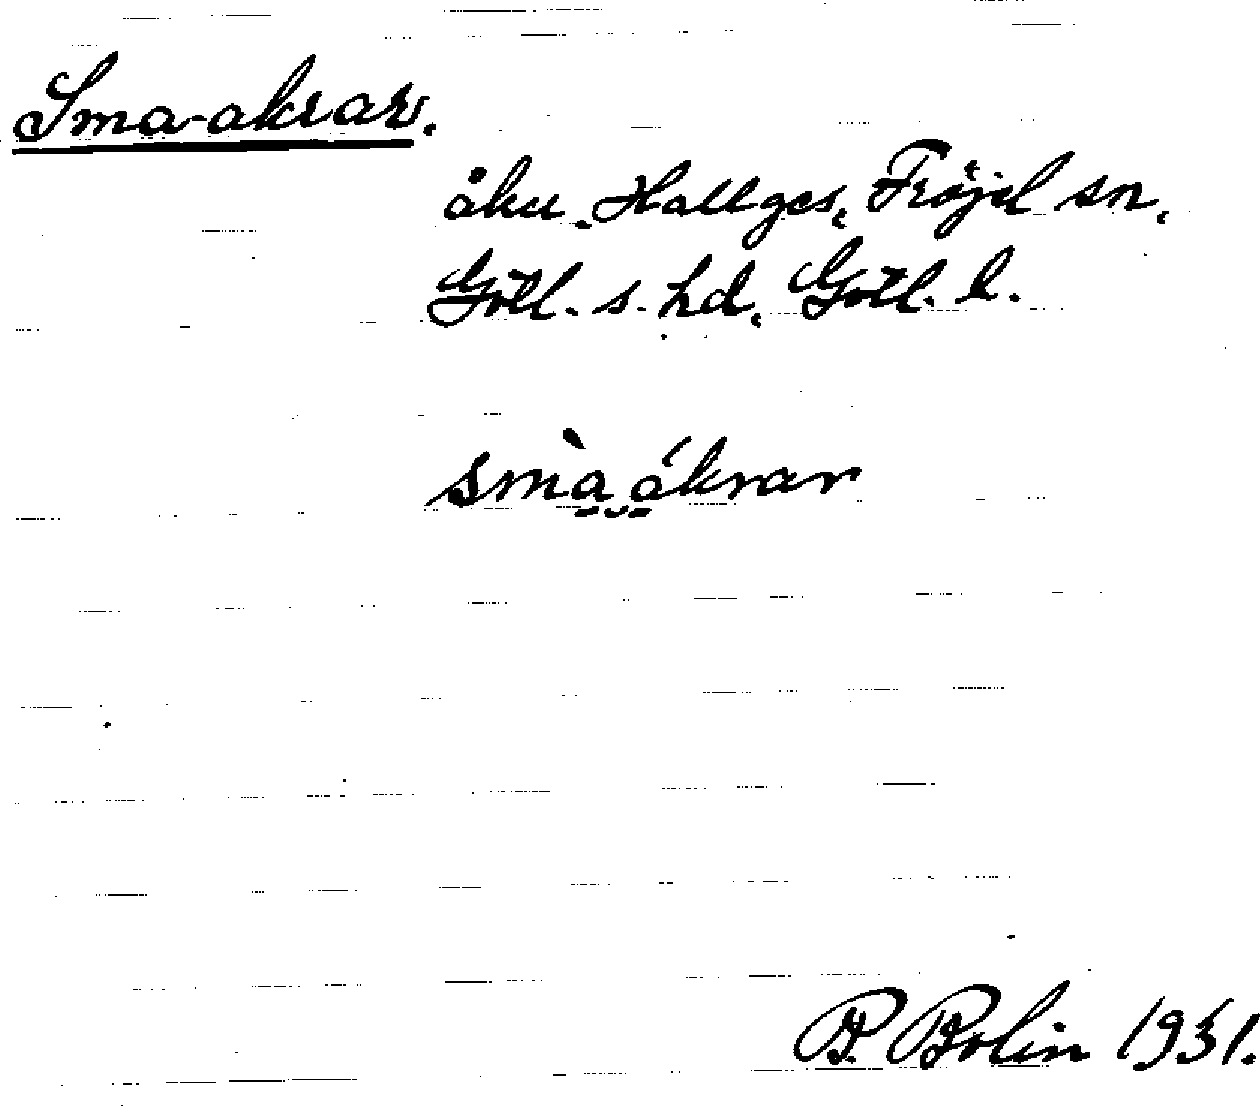 Sma-akrar.
åku, Hallges, Fröjel sn,
Gotl. s. hd, Gotl. l.
smàákrar
P. Bolin 1931.